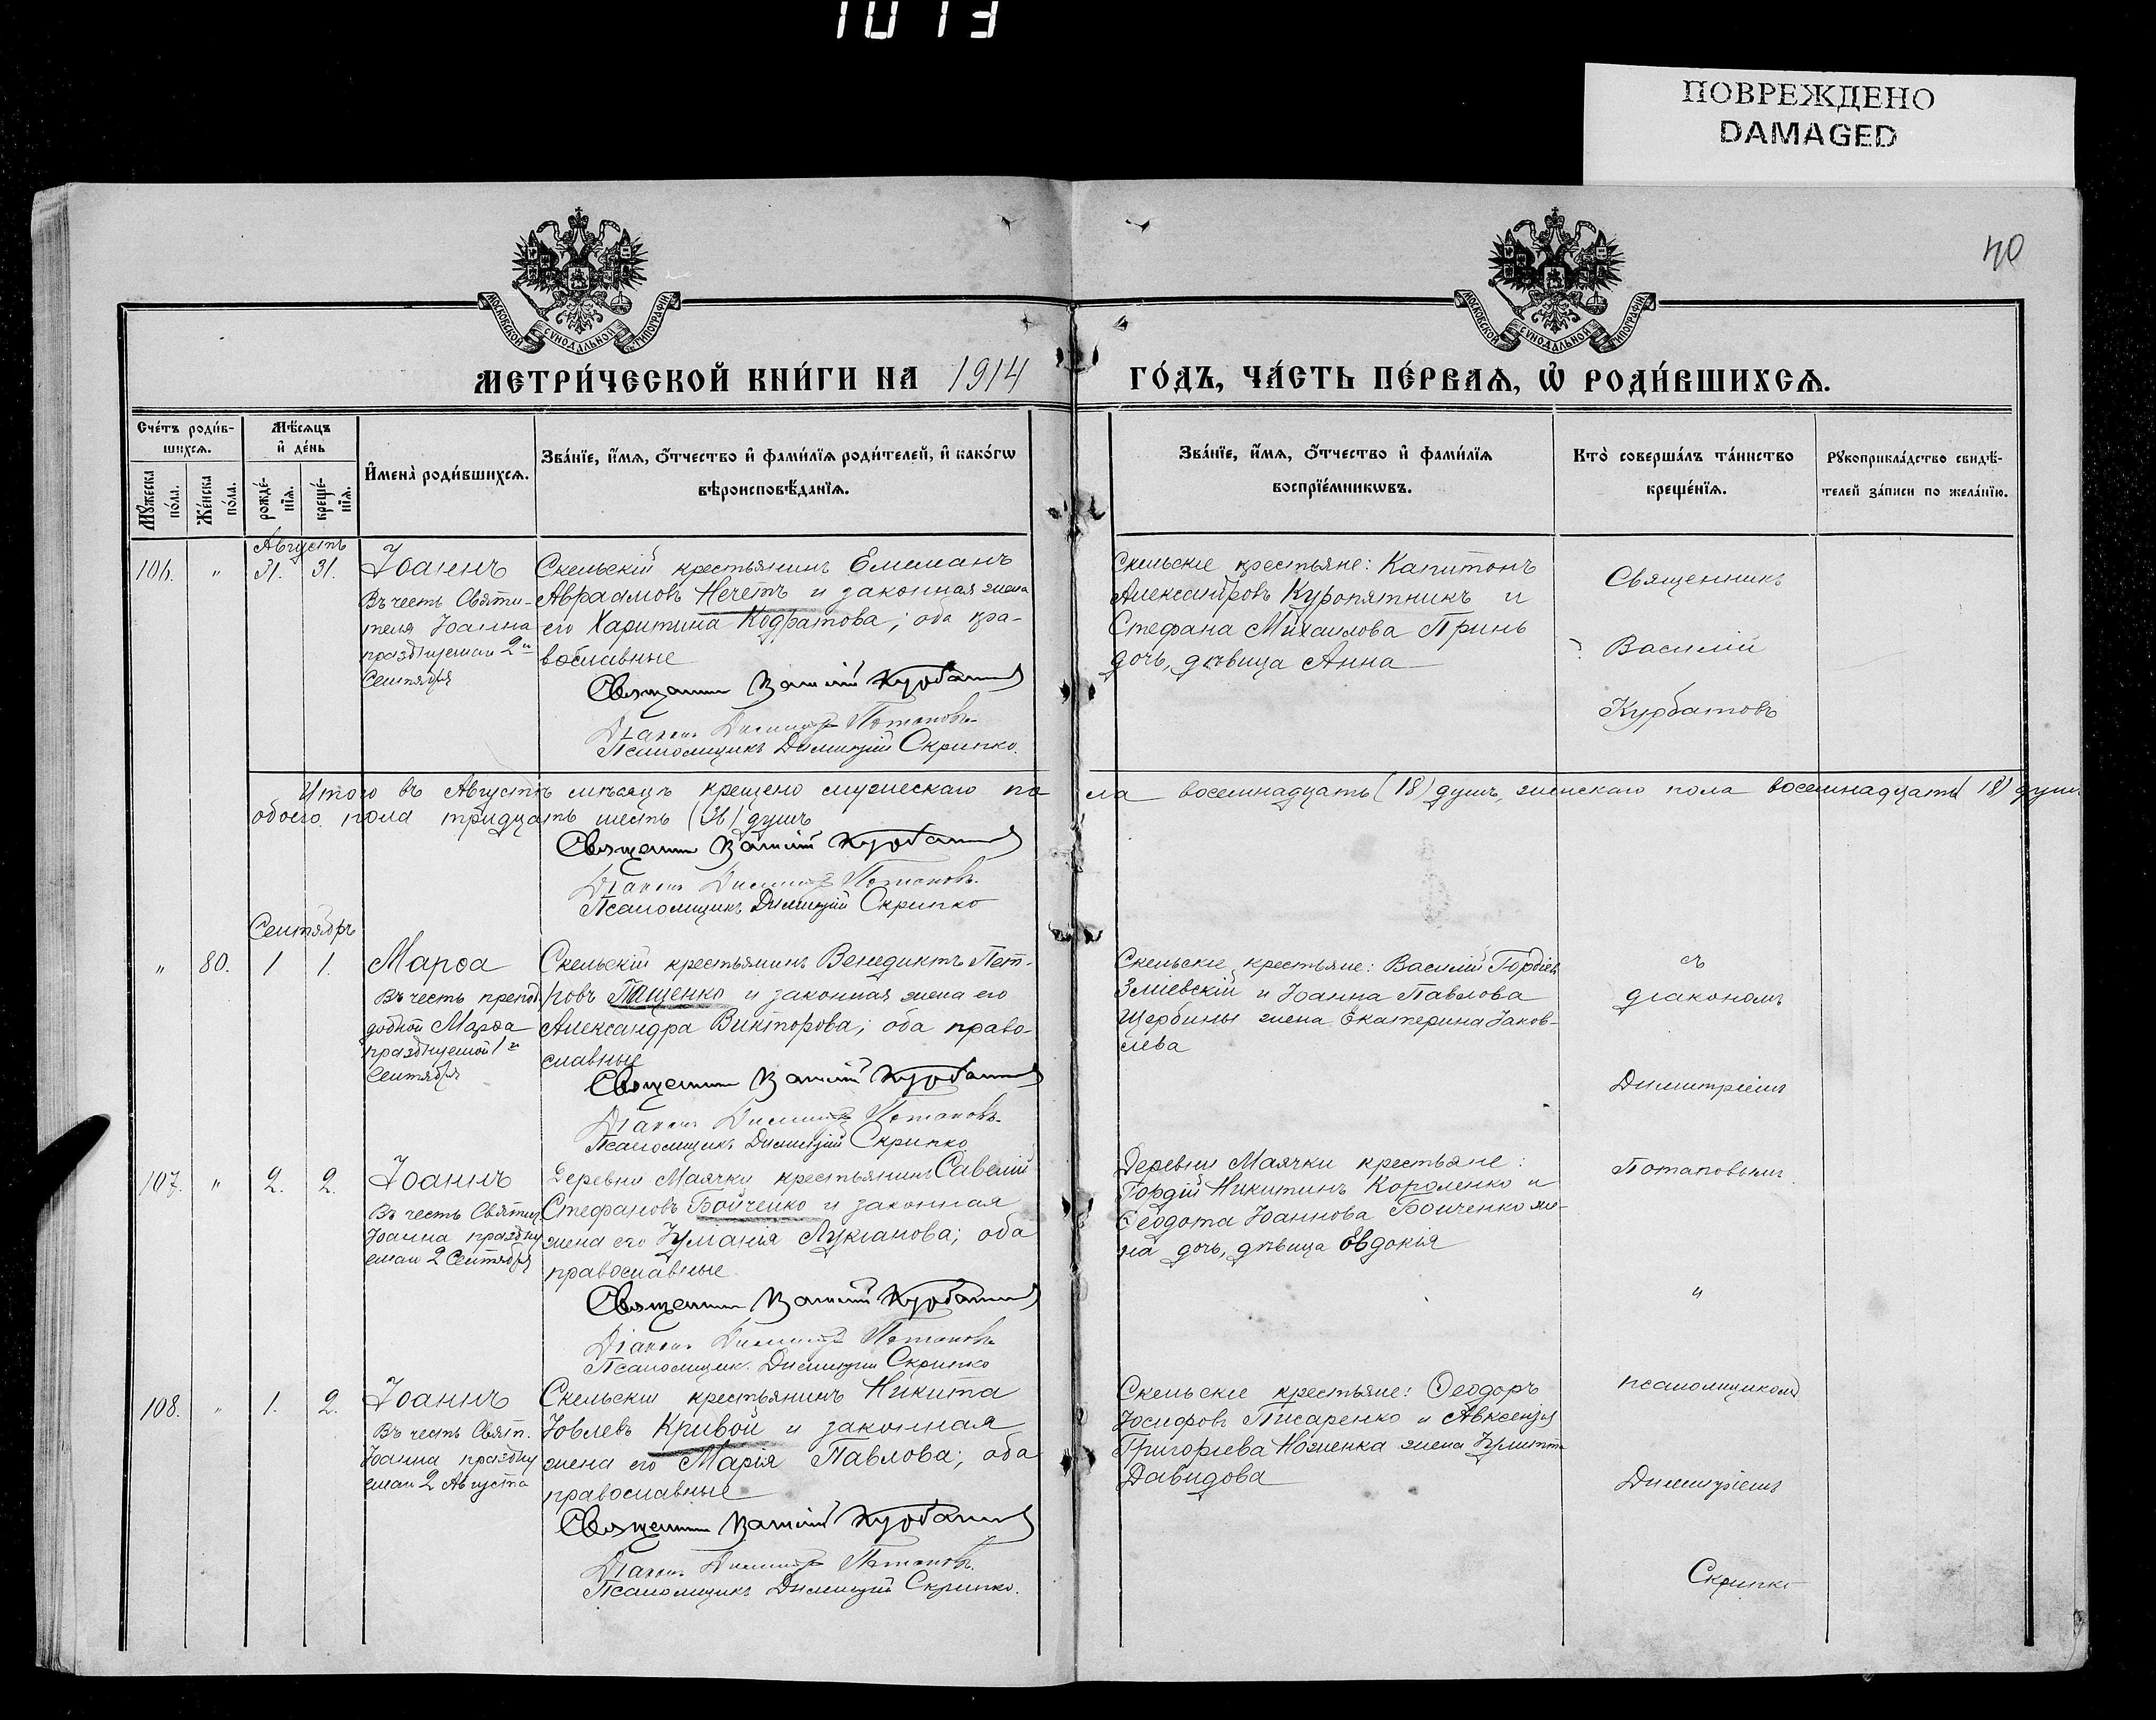 1013
ПОВРЕЖДЕНО
DAMAGED
40
МОСКОВСКОЙ СѴНОДАЛЬНОЙ ТИПОГРАФІИ
МОСКОВСКОЙ СѴНОДАЛЬНОЙ ТИПОГРАФІИ
МЕТРИ́ЧЕСКОЙ КНИ́ГИ НА 1914 ГО́ДЪ, ЧА́СТЬ ПЕ́РВАѦ, Ѽ РОДИ́ВШИХСѦ.
Сче́тъ роди́в-
шихсѧ.
Мѣ́сѧцъ
и҆ де́нь
Мꙋ́жеска
по́ла.
Же́нска
по́ла.
рожде́-
нїѧ.
креще́-
нїѧ.
И҆мена̀ роди́вшихсѧ.
Зва́нїе, и҆́мѧ, ѻ҆́тчество и҆ фами́лїѧ роди́телей, и҆ како́гѡ
вѣроисповѣ́данїѧ.
Зва́нїе, и҆́мѧ, ѻ҆́тчество и҆ фами́лїѧ
воспрїе́мникѡвъ.
Кто̀ соверша́лъ та́инство
креще́нїѧ.
Рꙋкоприкла́дство свидѣ́-
телей за́писи по жела́нїю.
Августъ
106. " 31. 31. Іоаннъ
Въ честь Святи-
теля Іоанна
празднуемаи 2го
Сентября
Скельскій крестьянинъ Емеліанъ
Авраамовъ Нечетъ и законная жена
его Харитина Кодратова; оба пра-
вославные
Священникъ Василій Курбатовъ
Діаконъ Димитрій Потаповъ
Псаломщикъ Димитрій Скрипко.
Скельскіе крестьяне: Капитонъ
Александровъ Куропятникъ и
Стефана Михаилова Принь
дочь, дѣвица Анна
Священникъ
Василій
Курбатовъ
Итого въ Августѣ мѣсяцѣ крещено мужескаго по ла восемнадцать (18) душъ, женскаго пола восемнадцать (18) душъ
обоего пола тридцать шесть (36) душъ
Священникъ Василій Курбатовъ
Діаконъ Димитрій Потаповъ.
Псаломщикъ Димитрій Скрипко
Сентябрь
" 80. 1 1. Марѳа
Въ честь препо
добной Марѳа
празднуемой 1го
Сентября
Скельскій крестьянинъ Венедиктъ Пет-
ровъ Пащенко и законная жена его
Александра Викторова; оба право-
славные
Священникъ Василій Курбатовъ
Діаконъ Димитрій Потаповъ.
Псаломщикъ Димитрій Скрипко
Скельскіе крестьяне: Василій Гордіевъ
Зміевскій и Іоанна Павлова
Щербины жена Екатерина Іаков-
лева
съ
діакономъ
Димитріемъ
107. " 2. 2. Іоаннъ
Въ честь Святит.
Іоанна праздну
емаи 2 Сентября
Деревни Маячки крестьянинъ Савелій
Стефановъ Бойченко и законная
жена его Іуліанія Лукіанова; оба
православные
Священникъ Василій Курбатовъ
Діаконъ Димитрій Потаповъ
Псаломщикъ Димитрій Скрипко
Деревни Маячки крестьяне:
Гордій Никитинъ Короленко и
Ѳеодота Іоаннова Бойченко
на дочь, дѣвица Евдокія
Потаповымъ
"
108. " 1. 2. Іоаннъ
Въ честь Свят.
Іоанна праздну
емаи 2 Августа
Скельскій крестьянинъ Никита
Іовлевъ Кривой и законная
жена его Марія Павлова; оба
православные
Священникъ Василій Курбатовъ
Діаконъ Димитрій Потаповъ.
Псаломщикъ Димитрій Скрипко.
Скельскіе крестьяне: Ѳеодоръ
Іосифовъ Писаренко и Авксентія
Григоріева Ноженка жена
Давидова
псаломщикомъ
Димитріемъ
Скрипко